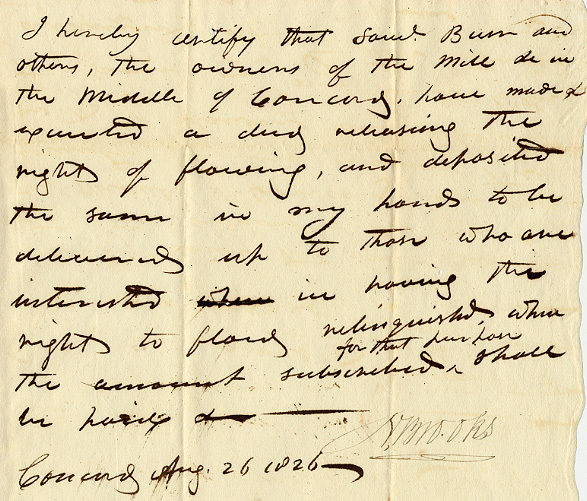 I hereby certify that Saml. Burr and
others, the owners of the Mill &c in
the Middle of Concord, have made &
executed a deed releasing the
right of flowing, and deposited
the same in my hands to be
delivered up to those who are
interested when in having the
right to flow relinquished when
for that purpose
the amount subscribed shall
be paid &
N Brooks
Concord Aug. 26 1826